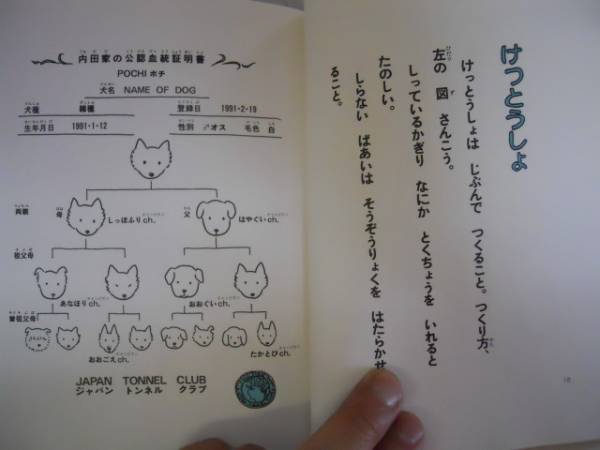 内田家の公認血統証明書
POCHI ポチ
犬名 NAME OF DOG
犬種 雑種 登録日 1991・2・19
生年月日 1991・1・12 性別 ♂オス 毛色 白
両親 母 しっぽふりch. 父 はやぐいch.
祖父母 あなほりch. おおぐいch.
曽祖父母 おおごえch. たかとびch.
JAPAN TONNEL CLUB
ジャパン トンネル クラブ
けっとうしょ
けっとうしょは じぶんで つくること。つくり方、
左の 図 さんこう。
しっているかぎり なにか とくちょうを いれると
たのしい。
しらない ばあいは そうぞうりょくを はたらかせ
ること。